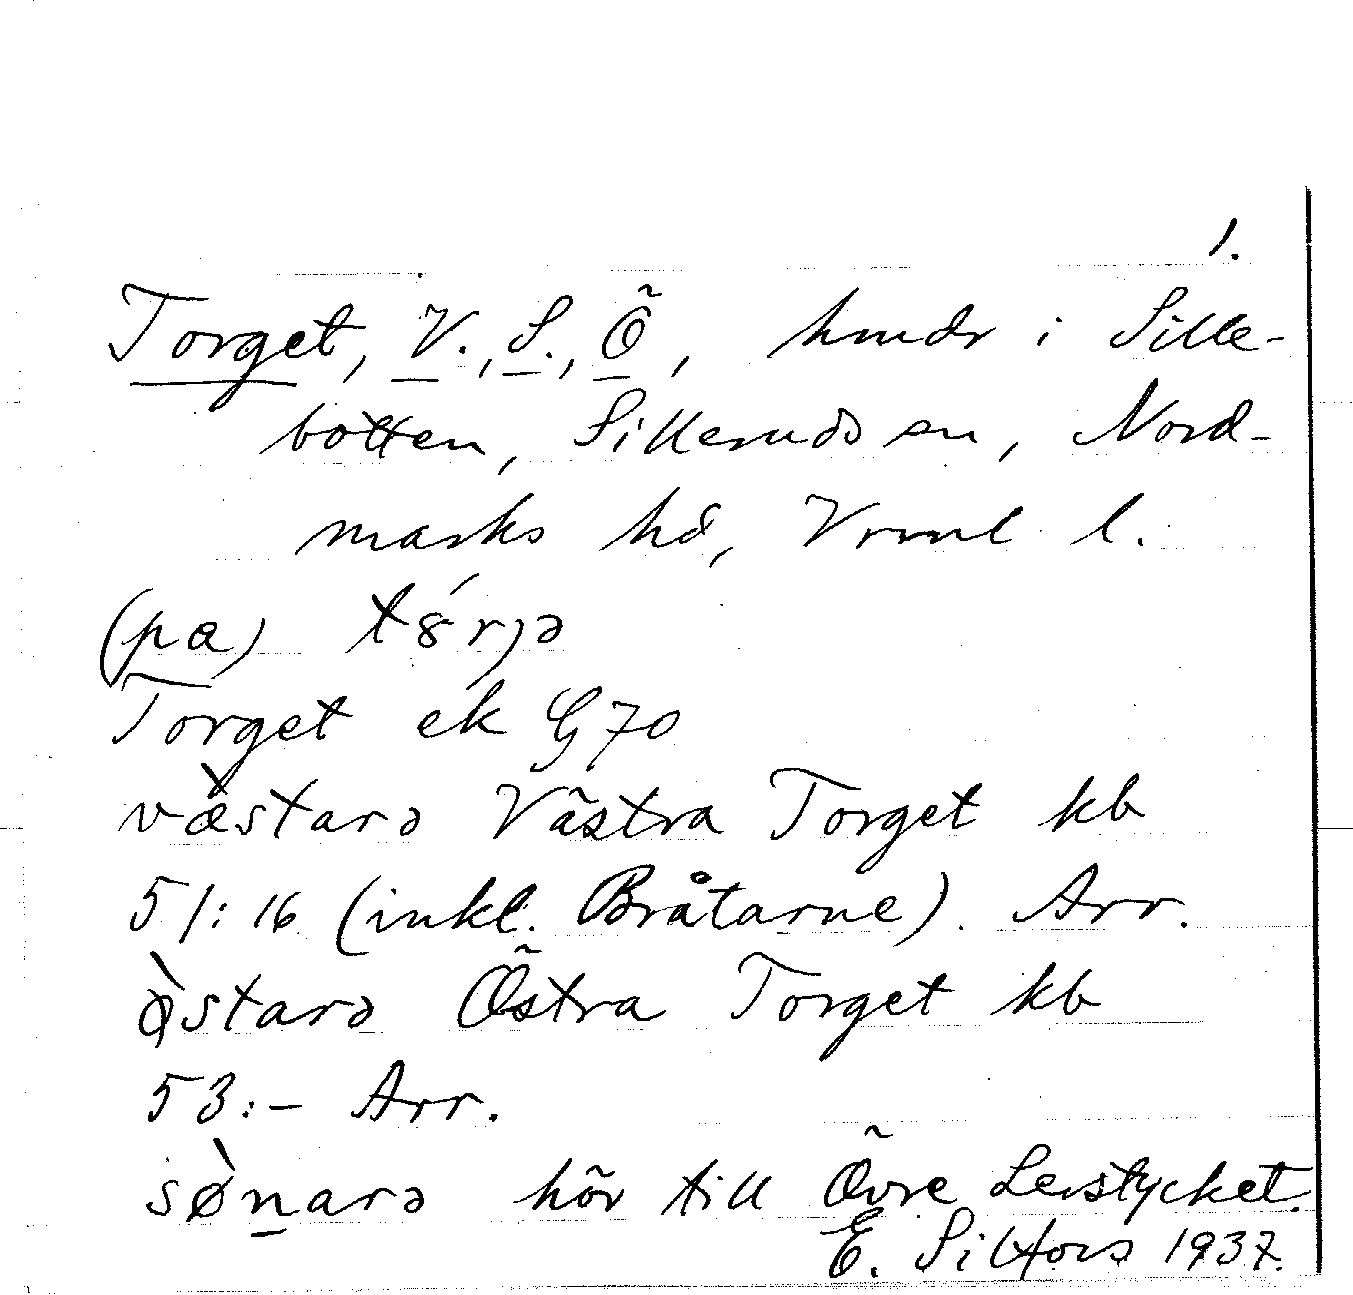 1.
Torget, V., S., Ö, hmdr i Sille-
botten, Silleruds sn, Nord-
marks hd, Vrml l.
(pa) tȣ́rjə
Torget ek G 70
væ̀starə Västra Torget kb
51:16 (inkl. Bråtarne). Arr.
ø̀starə Östra Torget kb
53:– Arr.
sø̀narə hör till Övre Lerstycket.
E. 1937.